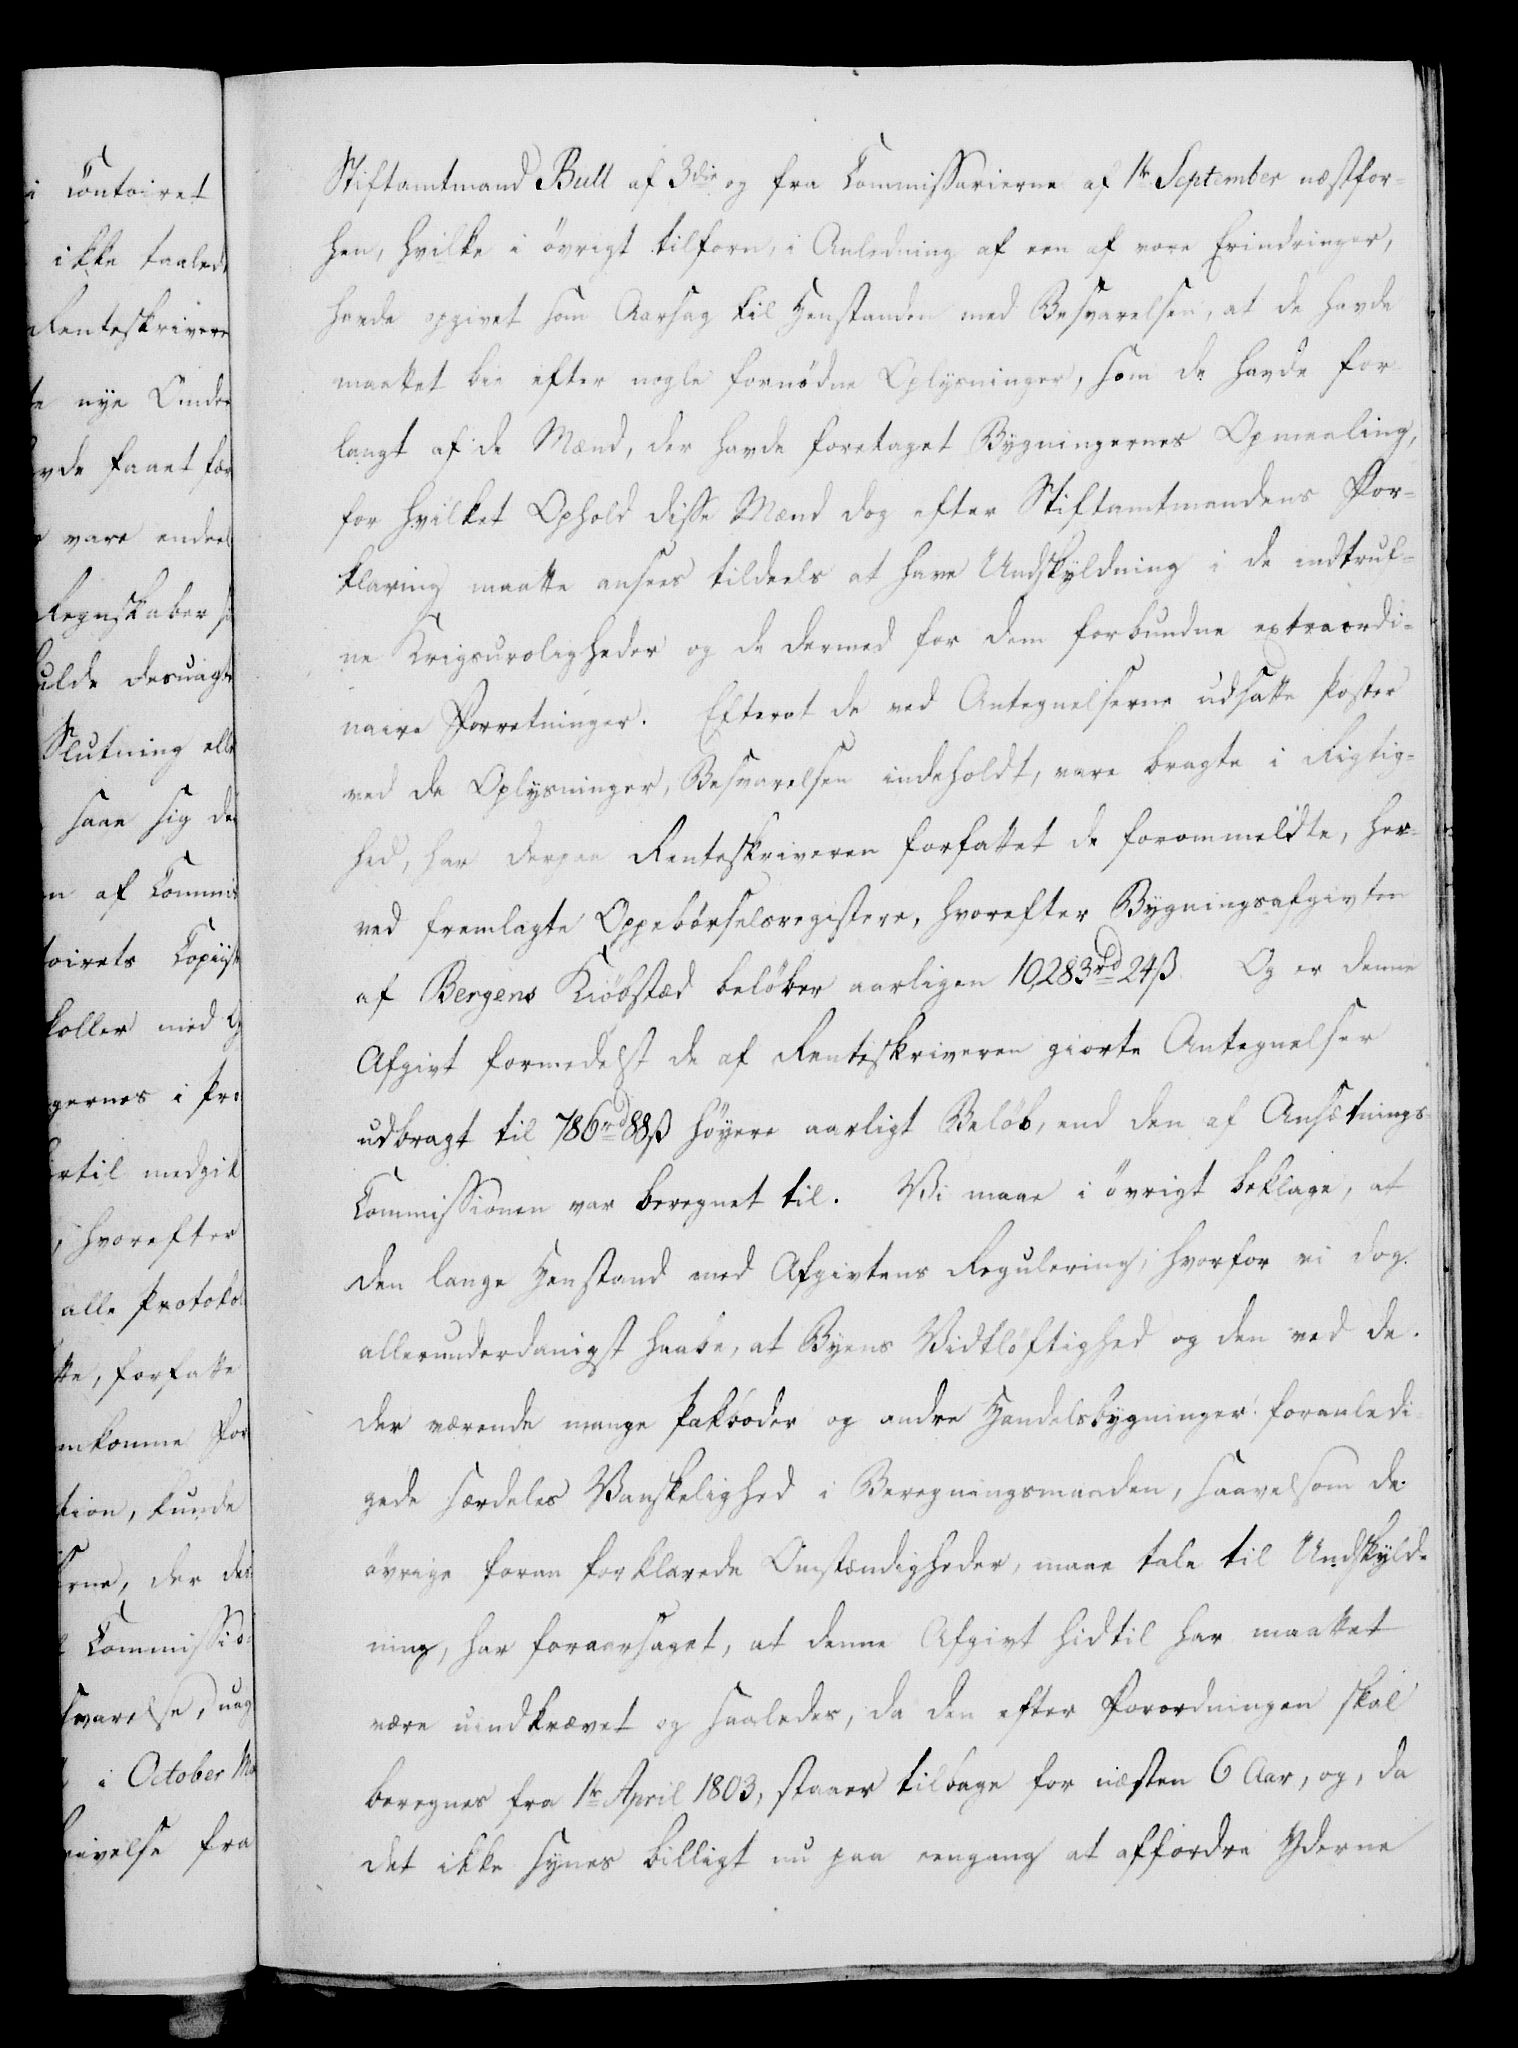 i Contoiret
ikke taaled
Renteskrivere
te nye Under
vde faaet fær
e vare endeel
Regnskaber s
ulde desuagt
Slutning elle
saae sig de
n af Commis
toirets Copiist
koller med
gernes i Pro
ertil medgik
, hvorefter
alle Protokol
tte, forfatte
mkomme For
tion, kunde
erne, der des
l Commissio=
svarelse, uag
i October M
rivelse fra
Stiftamtmand Bull af 3die og fra Commissarierne af 1te September næstfor=
hen, hvilke i övrigt tilforn, i Anledning af een af vore Erindringer,
havde opgivet som Aarsag til Henstanden med Besvarelsen, at de havde
maattet bie efter nogle fornødne Oplysninger, som de havde for
langt af de Mænd, der havde foretaget Bygningernes Opmaaling,
for hvilket Ophold disse Mænd dog efter Stiftamtmandens For=
klaring maatte ansees tildeels at have Undskyldning i de indtruf=
ne Krigsuroligheder og de dermed for dem forbundne extraordi=
naire Forretninger. Efterat de ved Antegnelserne udsatte Poster
ved de Oplysninger, Besvarelsen indeholdt, vare bragte i Rigtig=
hed, har derpaa Renteskriveren forfattet de forommeldte, her=
ved fremlagte Oppebörselsregistere, hvorefter Bygningsafgivten
af Bergens Kiöbstæd belöber aarligen 10,283rd 24ß. Og er denne
Afgivt formedelst de af Renteskriveren giorte Antegnelser
udbragt til 786rd 88ß höyere aarligt Belöb, end den af Ansætnings=
Commissionen var beregnet til. Vi maae i övrigt beklage, at
den lange Henstand med Afgivtens Regulering, hvorfor vi dog
allerunderdanigst haabe, at Byens Vidtlöftighed og den ved de
der værende mange Pakboder og andre Handelsbygninger foranledi
gede særdeles Vanskelighed i Beregningsmaaden, saavelsom de
övrige foran forklarede Omstændigheder, maae tale til Undskyld
ning, har foraarsaget, at denne Afgivt hidtil har maattet
være uindkrævet og saaledes, da den efter Forordningen skal
beregnes fra 1te April 1803, staaer tilbage for næsten 6 Aar, og, da
det ikke synes billigt nu paa eengang at affordre Yderne